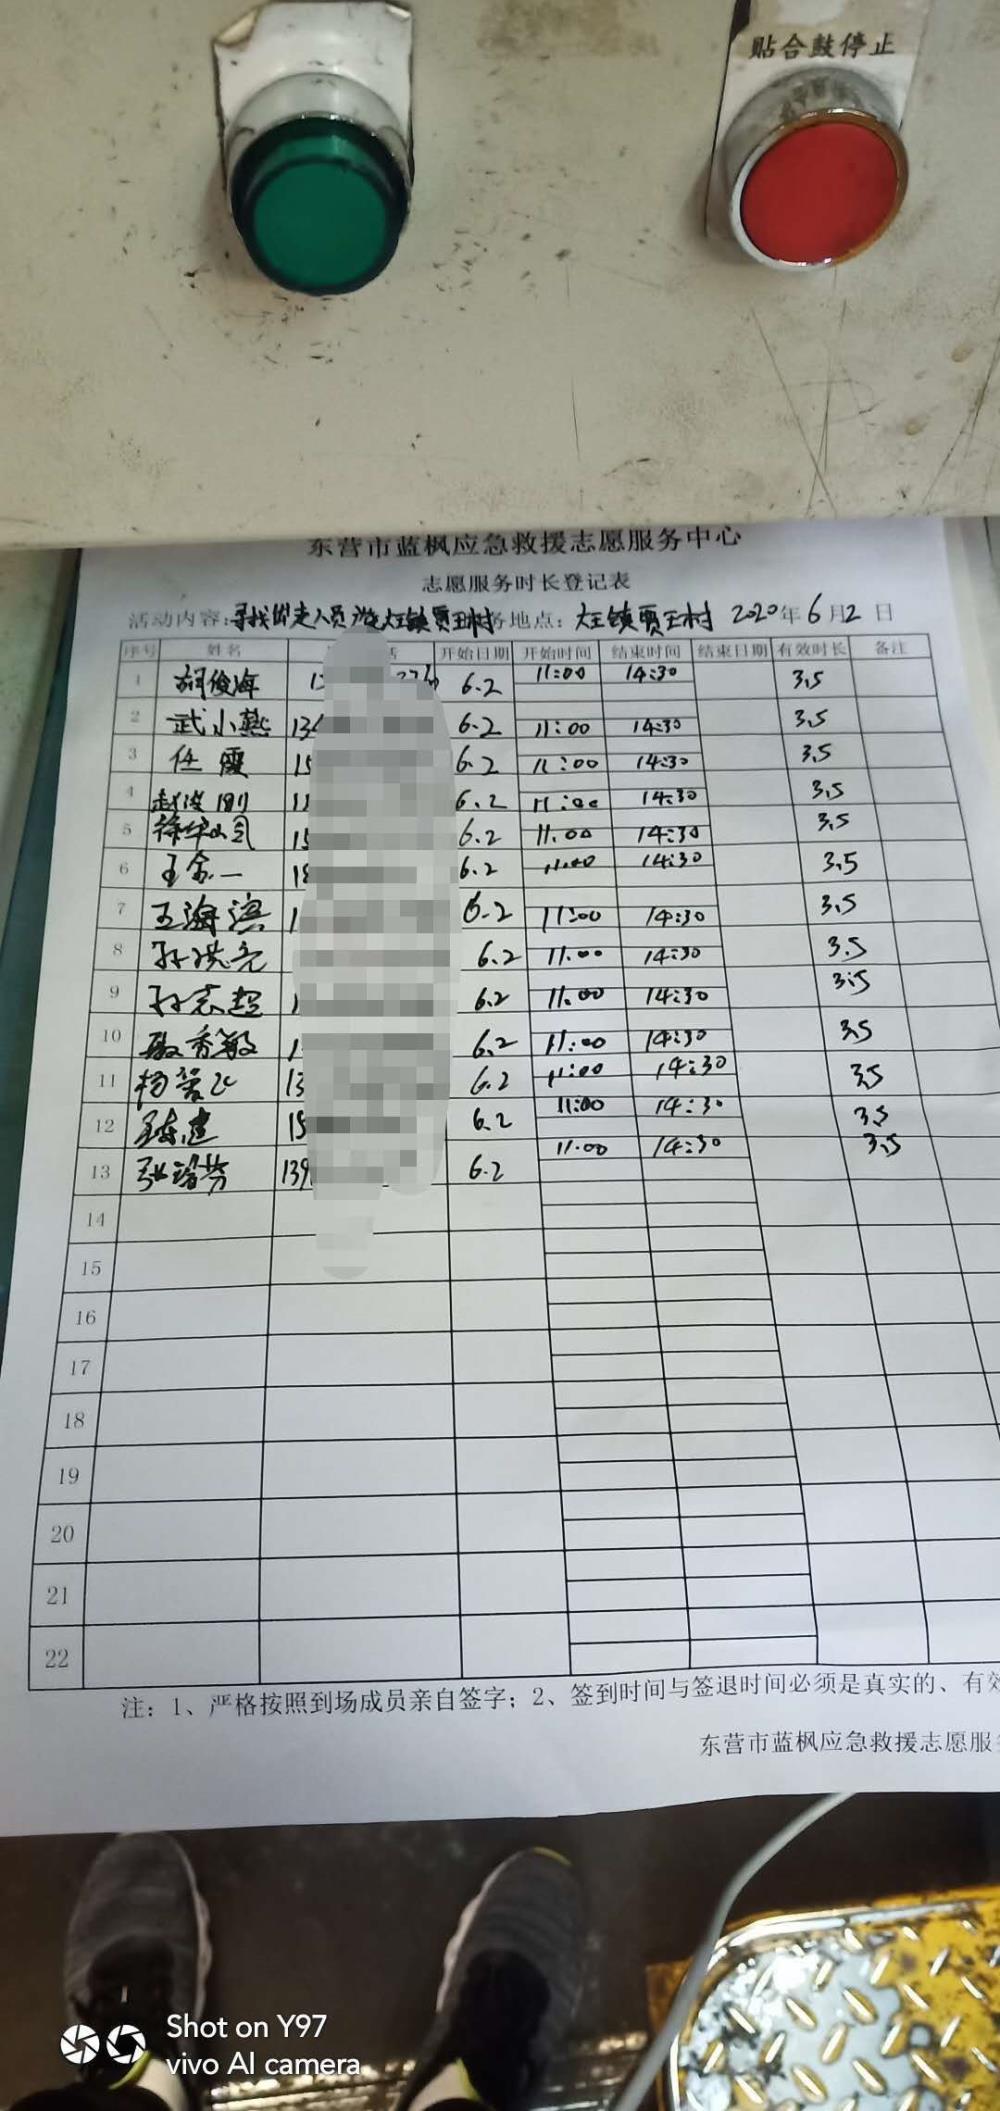 贴合鼓停止
东营市蓝枫应急救援志愿服务中心
志愿服务时长登记表
活动内容:寻找走人员 大王镇贾王村 务地点:大王镇贾王村 2020年6月2日
序号 姓名 话 开始日期 开始时间 结束时间 结束日期 有效时长 备注
1 胡俊海 6.2 11:00 14:30 3.5
2 武小燕 134 6.2 11:00 14:30 3.5
3 任霞 15 6.2 11:00 14:30 3.5
4 6.2 11:00 14:30 3.5
5 15 6.2 11:00 14:30 3.5
6 王 一 18 6.2 11:00 14:30 3.5
7 王海滨 1 6.2 11:00 14:30 3.5
8 孙洪亮 6.2 11:00 14:30 3.5
9 孙志超 1 6.2 11:00 14:30 3.5
10 秀敏 1 6.2 11:00 14:30 3.5
11 杨 13 6.2 11:00 14:30 3.5
12 建 15 6.2 11:00 14:30 3.5
13 张 芬 139 6.2 11:00 14:30 3.5
14
15
16
17
18
19
20
21
22
注:1、严格按照到场成员亲自签字;2、签到时间与签退时间必须是真实的、有效
东营市蓝枫应急救援志愿服
Shot on Y97
vivo AI camera